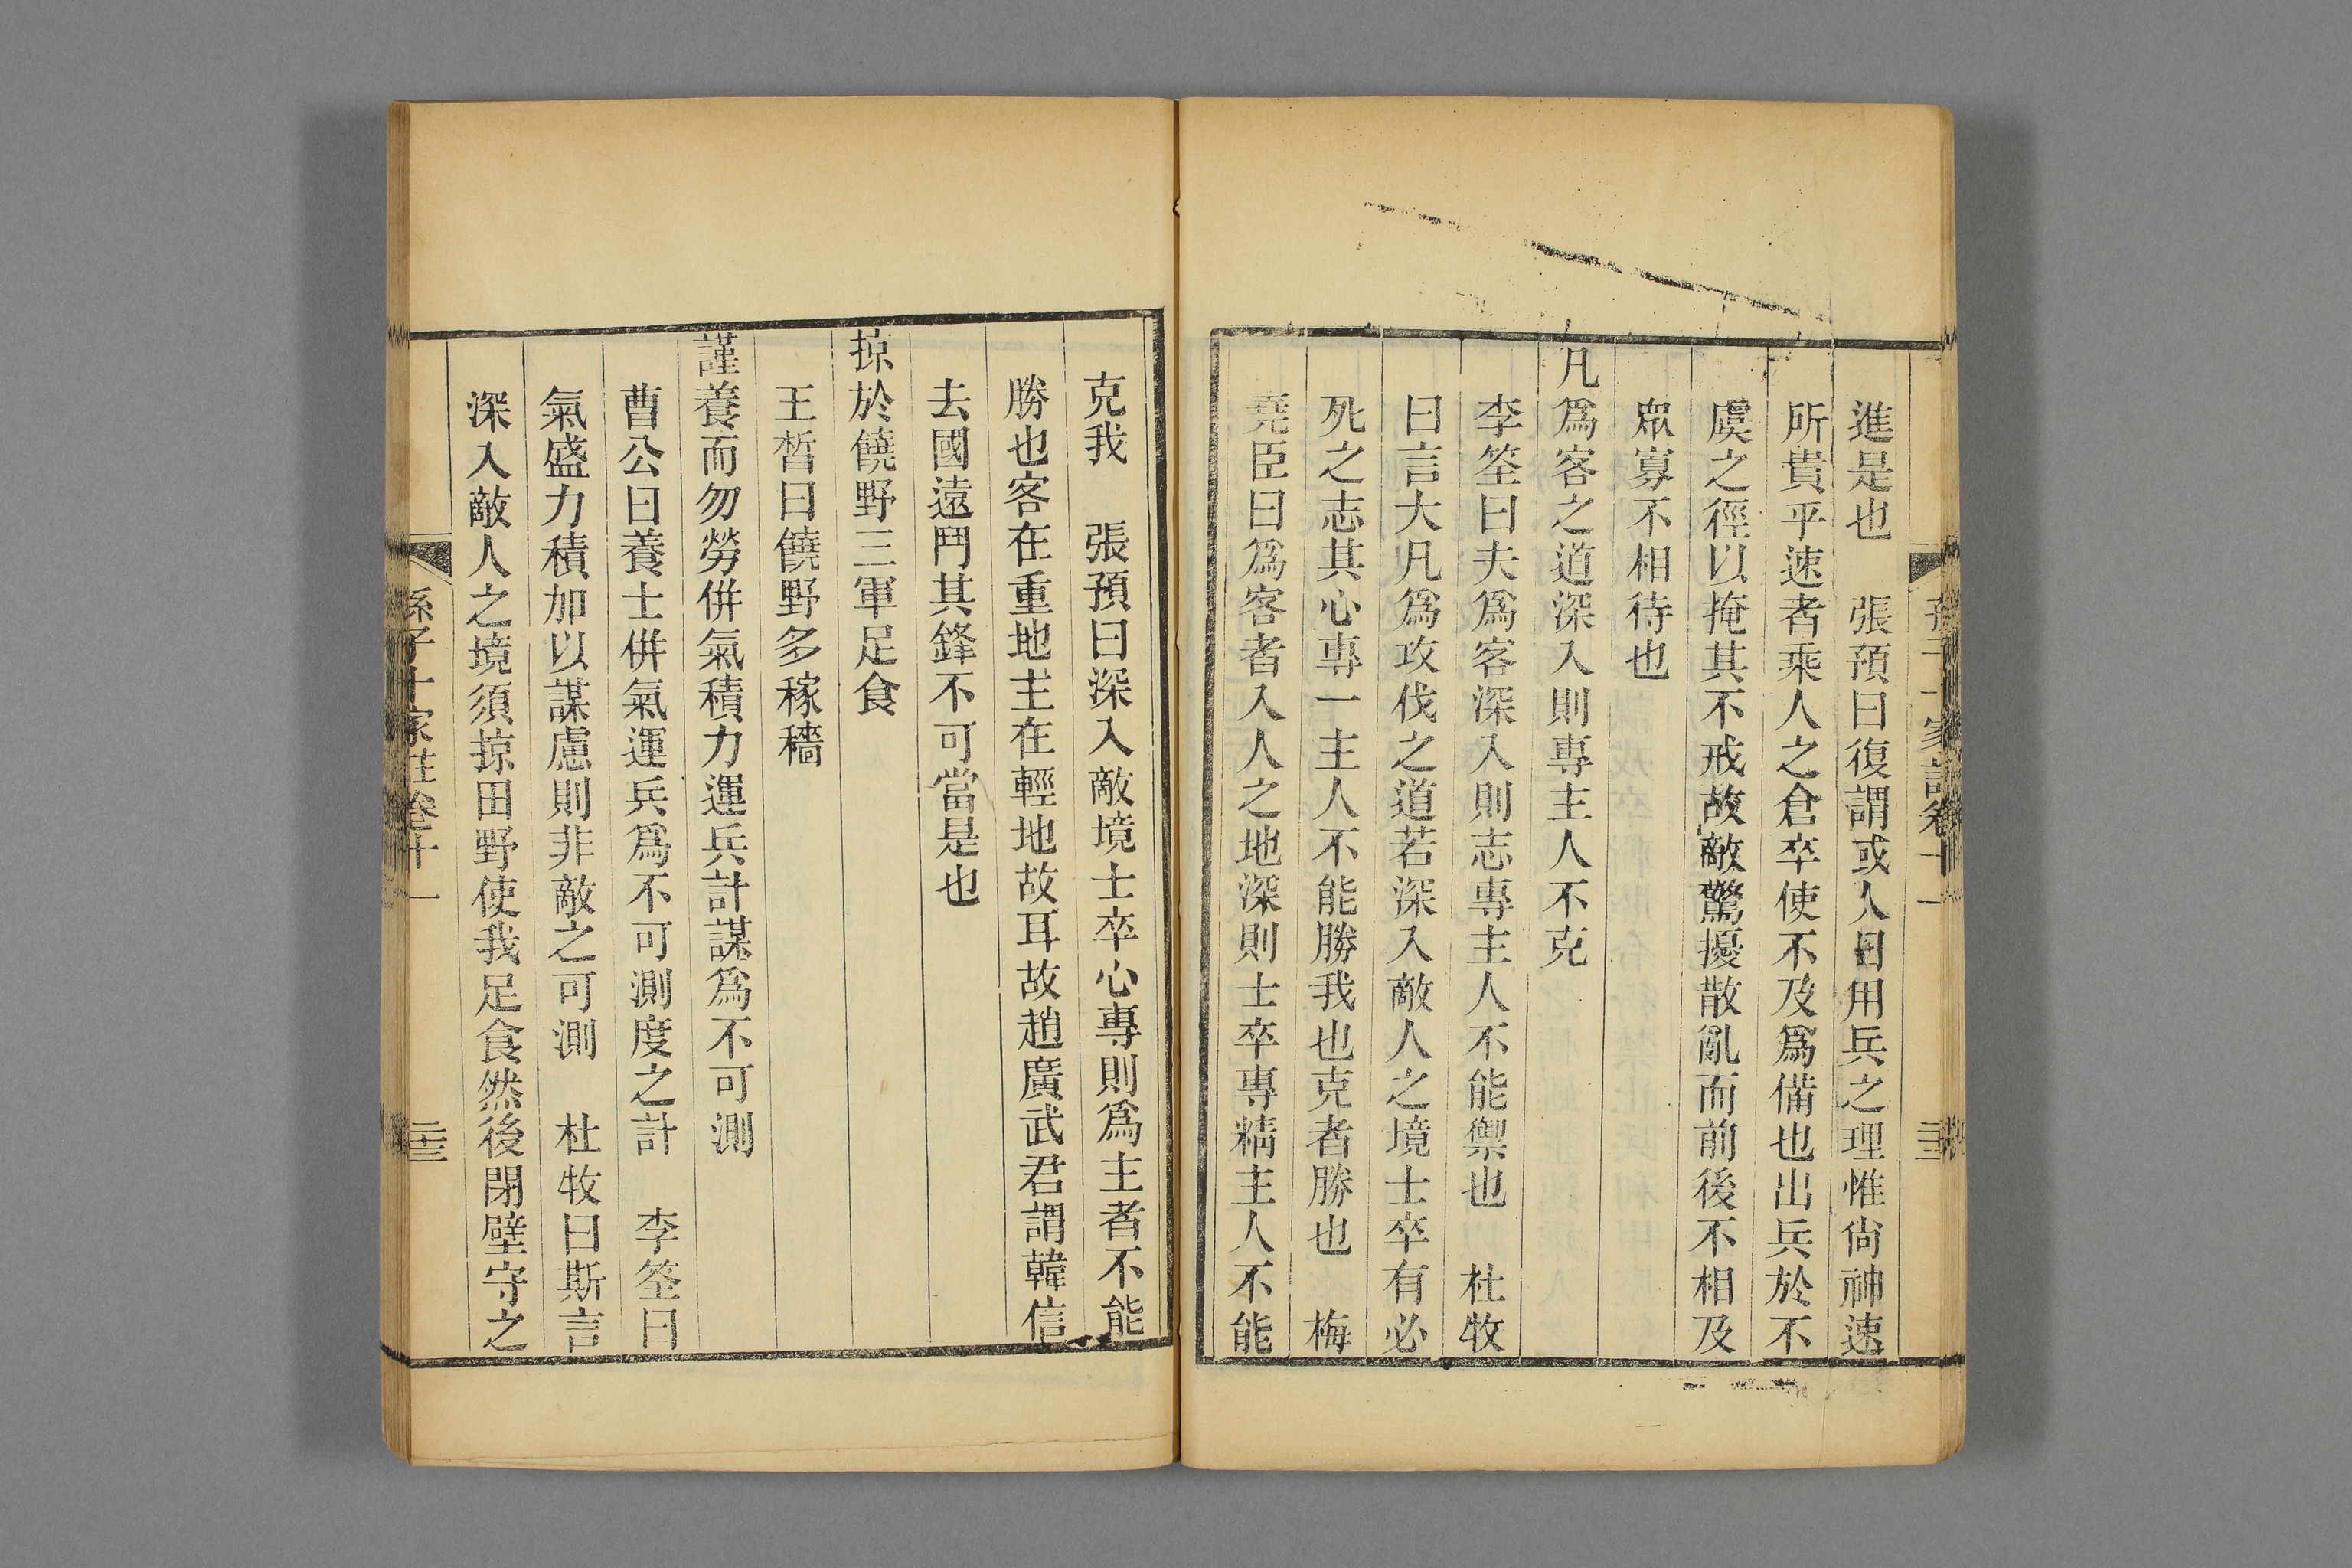 進是也　張預曰復謂或人曰用兵之理惟尙神速
所貴乎速者乘人之倉卒使不及爲備也出兵於不
虞之徑以掩其不戒故敵驚擾散亂而前後不相及
眾寡不相待也
凡爲客之道深入則專主人不克
李筌曰夫爲客深入則志專主人不能禦也　杜牧
曰言大凡爲攻伐之道若深入敵人之境士卒有必
死之志其心專一主人不能勝我也克者勝也　梅
堯臣曰爲客者入人之地深則士卒專精主人不能
克我　張預曰深入敵境士卒心專則爲主者不能
勝也客在重地主在輕地故耳故趙廣武君謂韓信
去國遠鬥其鋒不可當是也
掠於饒野三軍足食
王晳曰饒野多稼穡
謹養而勿勞併氣積力運兵計謀爲不可測
曹公曰養士併氣運兵爲不可測度之計　李筌曰
氣盛力積加以謀慮則非敵之可測　杜牧曰斯言
深入敵人之境須掠田野使我足食然後閉壁守之
孫子十家註卷十一